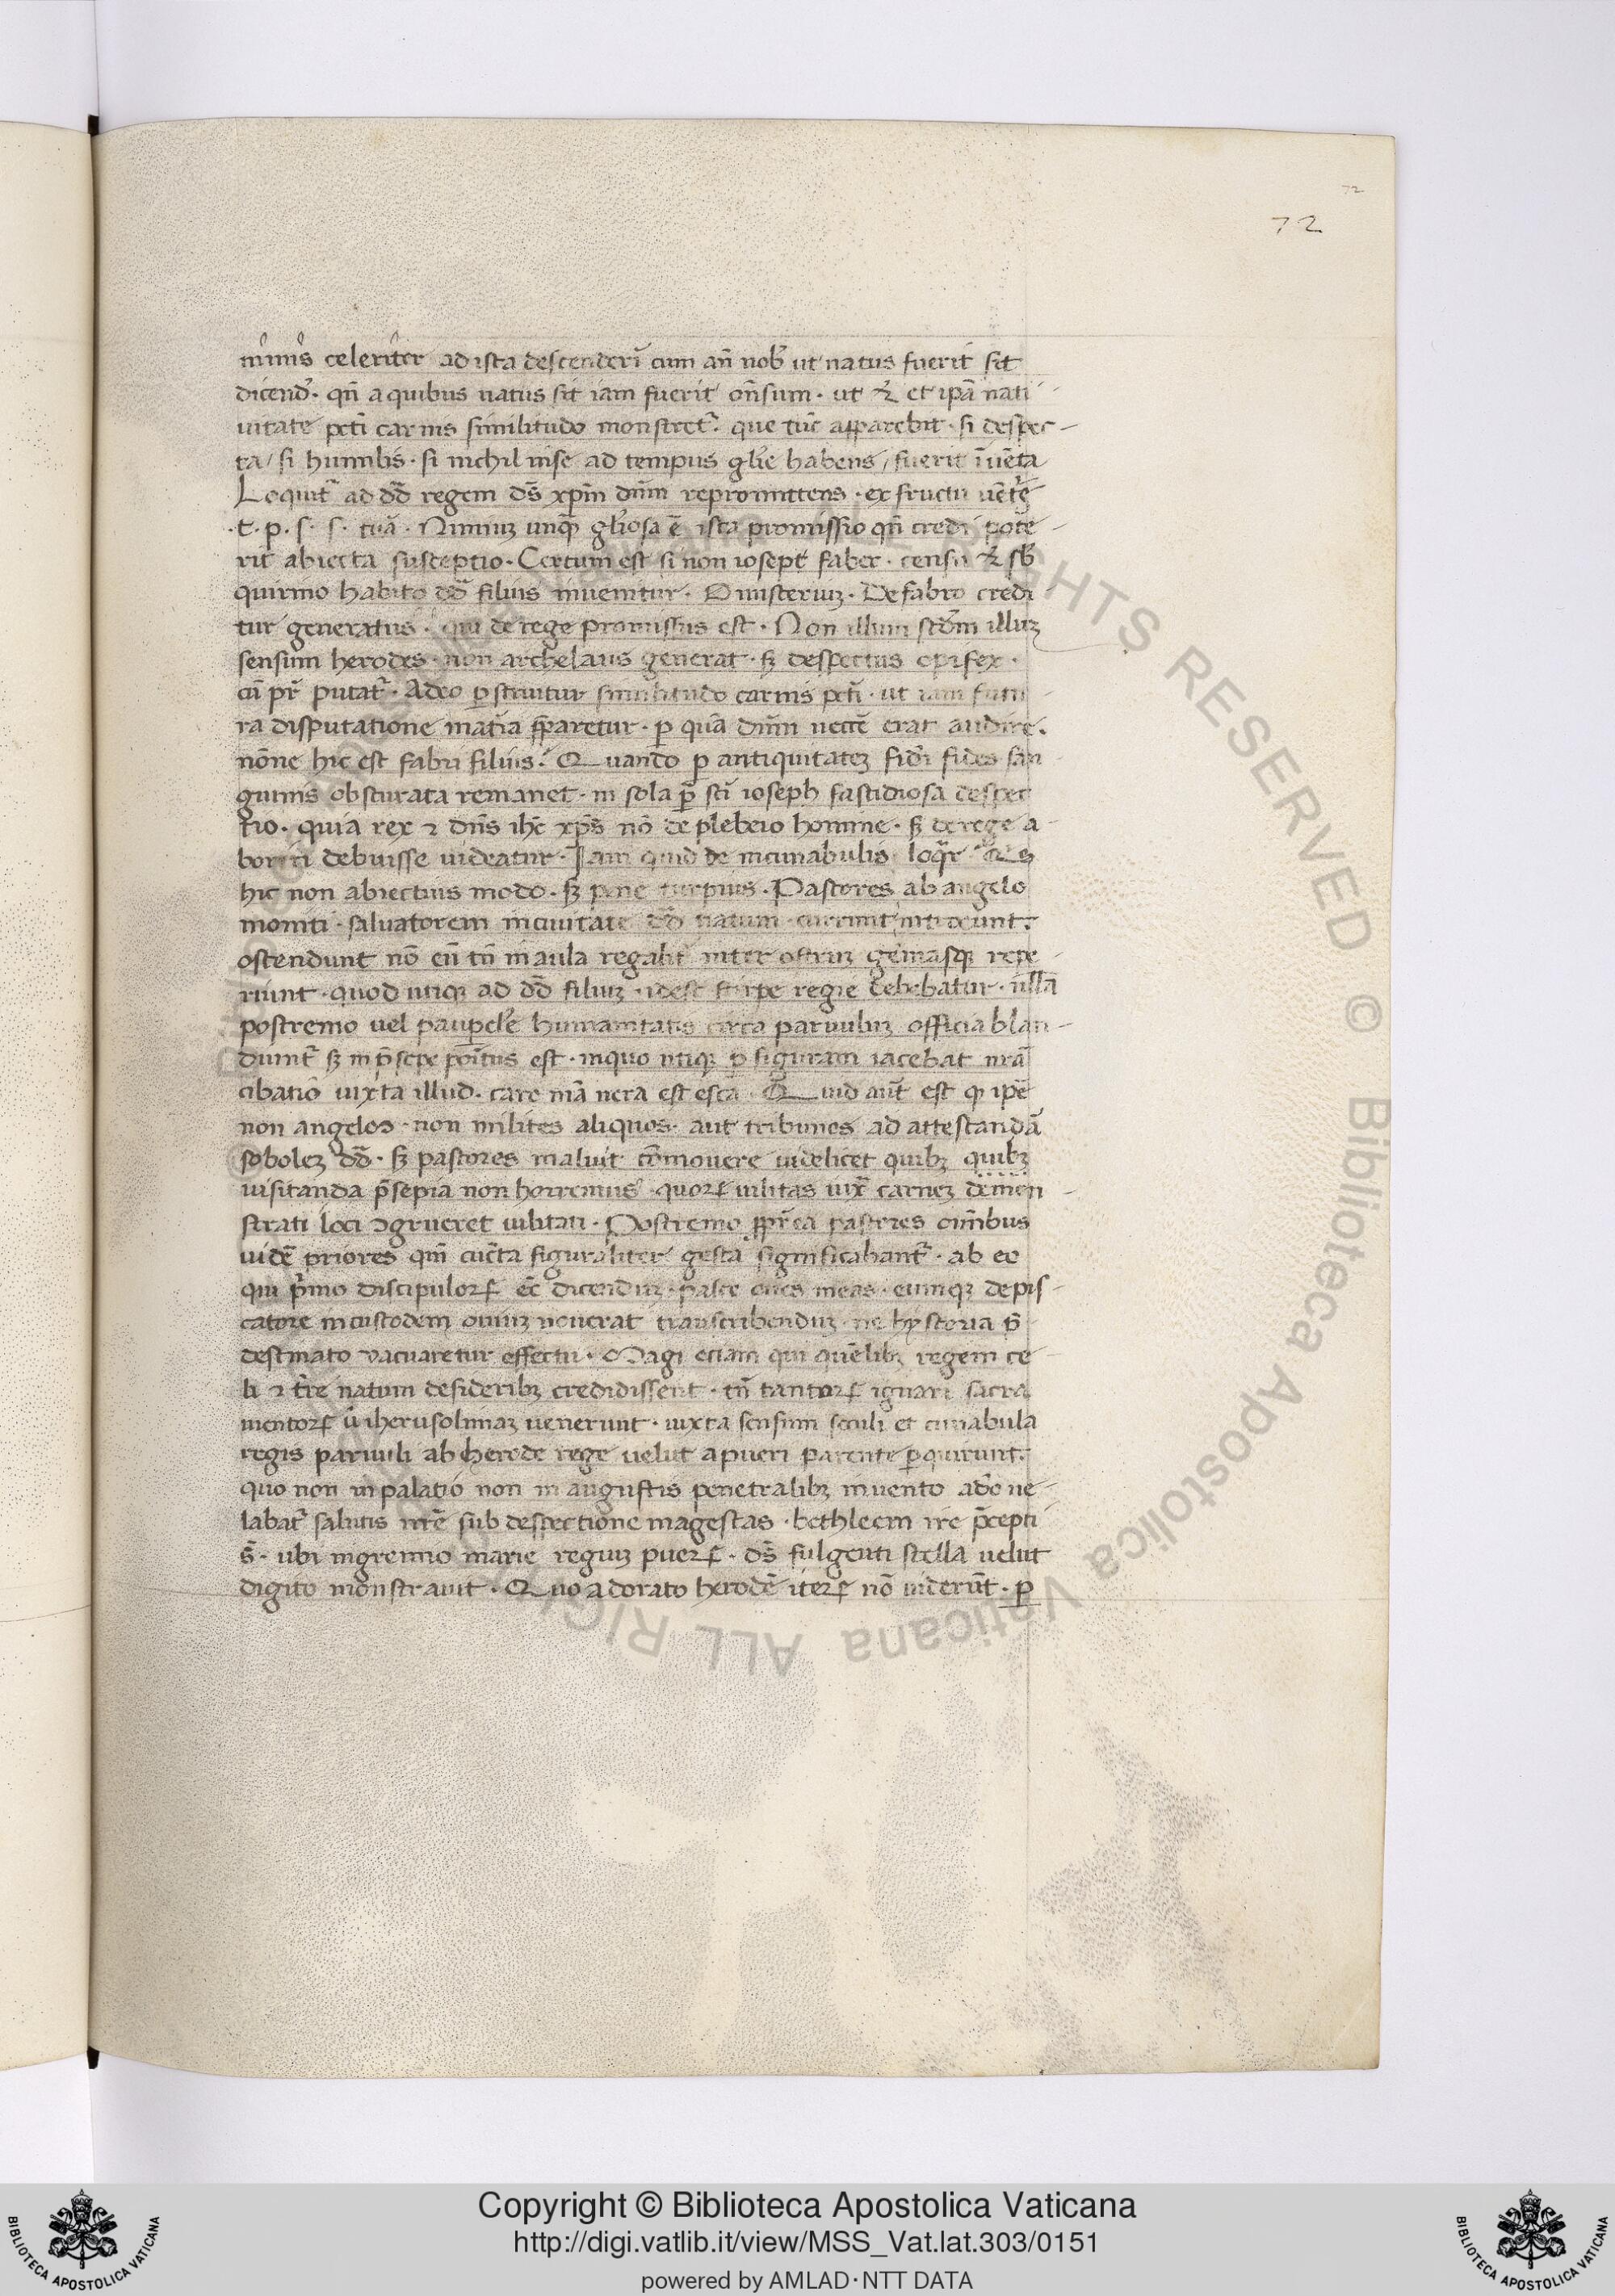 72
72
nimis celeriter ad ista descenderī cum an̄ nob̕ ut natus fuerit sit
dicend̕ · qn̄ a quibus natus sit iam fuerit on̄sum · ut et ipā nati-
uitate pcti carnis similitudo monstret̕ que tūc apparebit · si despec-
ta / si humilis · si nichil inse ad tempus glīe habens / fuerit īuēta
Loquit̕ ad dd̄ regem ds̄ xpm̄ dnm̄ repromittens · ex fructu uēt̄
· t · p · s · s · tuā · Nimiuꝫ unqꝫ gliosa ē ista promissio qn̄ credi pote-
rit abiecta susceptio · Certum est si non iosept faber · censu sb̕
quirino habito dd̄ filius inuenitur · O misteriuꝫ · De fabro credi
tur generatus · qui de rege promissus est · Non illum scdm̄ illuꝫ
sensum herodes · non archelaus generat · sꝫ despectus opifex ·
cū pr̄ putat̕ · Adeo ꝑstruitur similitudo carnis pcti · ut iam futu-
ra disputatione matīa ꝑparetur · ꝑ quā dnm̄ necc̄ erat audire ·
nōne hic est fabri filius? Quando ꝑ antiquitateꝫ fides san-
guinis obscurata remanet · in sola p̄ sci ioseph fastidiosa despec
tio · quia rex ⁊ dn̄s ihc̄ xp̄s nō de plebeio homine · sꝫ de rege a-
boriri debuisse uideatur · Iam quid de incunabulis loq̄r
hic non abiectius modo · sꝫ pene turpius · Pastores ab angelo
moniti · saluatorem inciuitate dd̄ natum currunt
ostendunt nō eū tn̄ in aula regali inter ostruꝫ gēmasqꝫ repe-
riunt · quod utiqꝫ ad dd̄ filiuꝫ · idest stirpe regie debebatur · ullā
postremo uel paupcle humanitatis circa paruuluꝫ officia blan-
diunt̕ sꝫ in p̄sepe poītus est · inquo utiqꝫ ꝑ figuram iacebat nrā
cibatiō iuxta illud · caro mā uera est esca · Quid aut̄ est qꝫ ipē
non angelos · non milites aliquos · aut tribunos ad attestandā
soboleꝫ dd̄ · sꝫ pastores maluit cōmouere uidelicet quibꝫ quibꝫ
uisitanda p̄sepia non horremus · quoꝝ uilitas iux̄ carneꝫ demon-
strati loci ꝯgrueret uilitati · Postremo ꝓprea pastores omībus
uidē priores qm̄ cūcta figuraliter gesta significabant̕ · ab eo
qui p̄mo discipuloꝝ ec̄ dicenduꝫ · pasce oues meas · eumqꝫ de pis-
catore in custodem ouiuꝫ nouerat transcribenduꝫ · ne hystoria p̄
destinato uacuaretur effectu · Magi eciam qui quēlibꝫ regem ce
li ⁊ t̄re natum desideribꝫ credidissent · tn̄ tantoꝝ ignari sacra
mentoꝝ ū iherusolimaꝫ uenerunt · iuxta sensum seculi et cunabula
regis paruuli ab herode rege uelut a pueri parente ꝑquirunt ·
quo non in palatio non in augustis penetralibꝫ inuento adeo ue-
labat̕ salutis nrē sub despectione magestas · bethleem ire p̄cepti
s̄ · ubi ingremio marie reguꝫ pueꝝ · ds̄ fulgenti stella uelut
digito monstrauit · Quo adorato herodē iteꝝ nō uiderūt · ꝑ
© Biblioteca Apostolica Vaticana ALL RIGHTS RESERVED
BIBLIOTECA APOSTOLICA VATICANA
Copyright © Biblioteca Apostolica Vaticana
http://digi.vatlib.it/view/MSS_Vat.lat.303/0151
powered by AMLAD·NTT DATA
BIBLIOTECA APOSTOLICA VATICANA